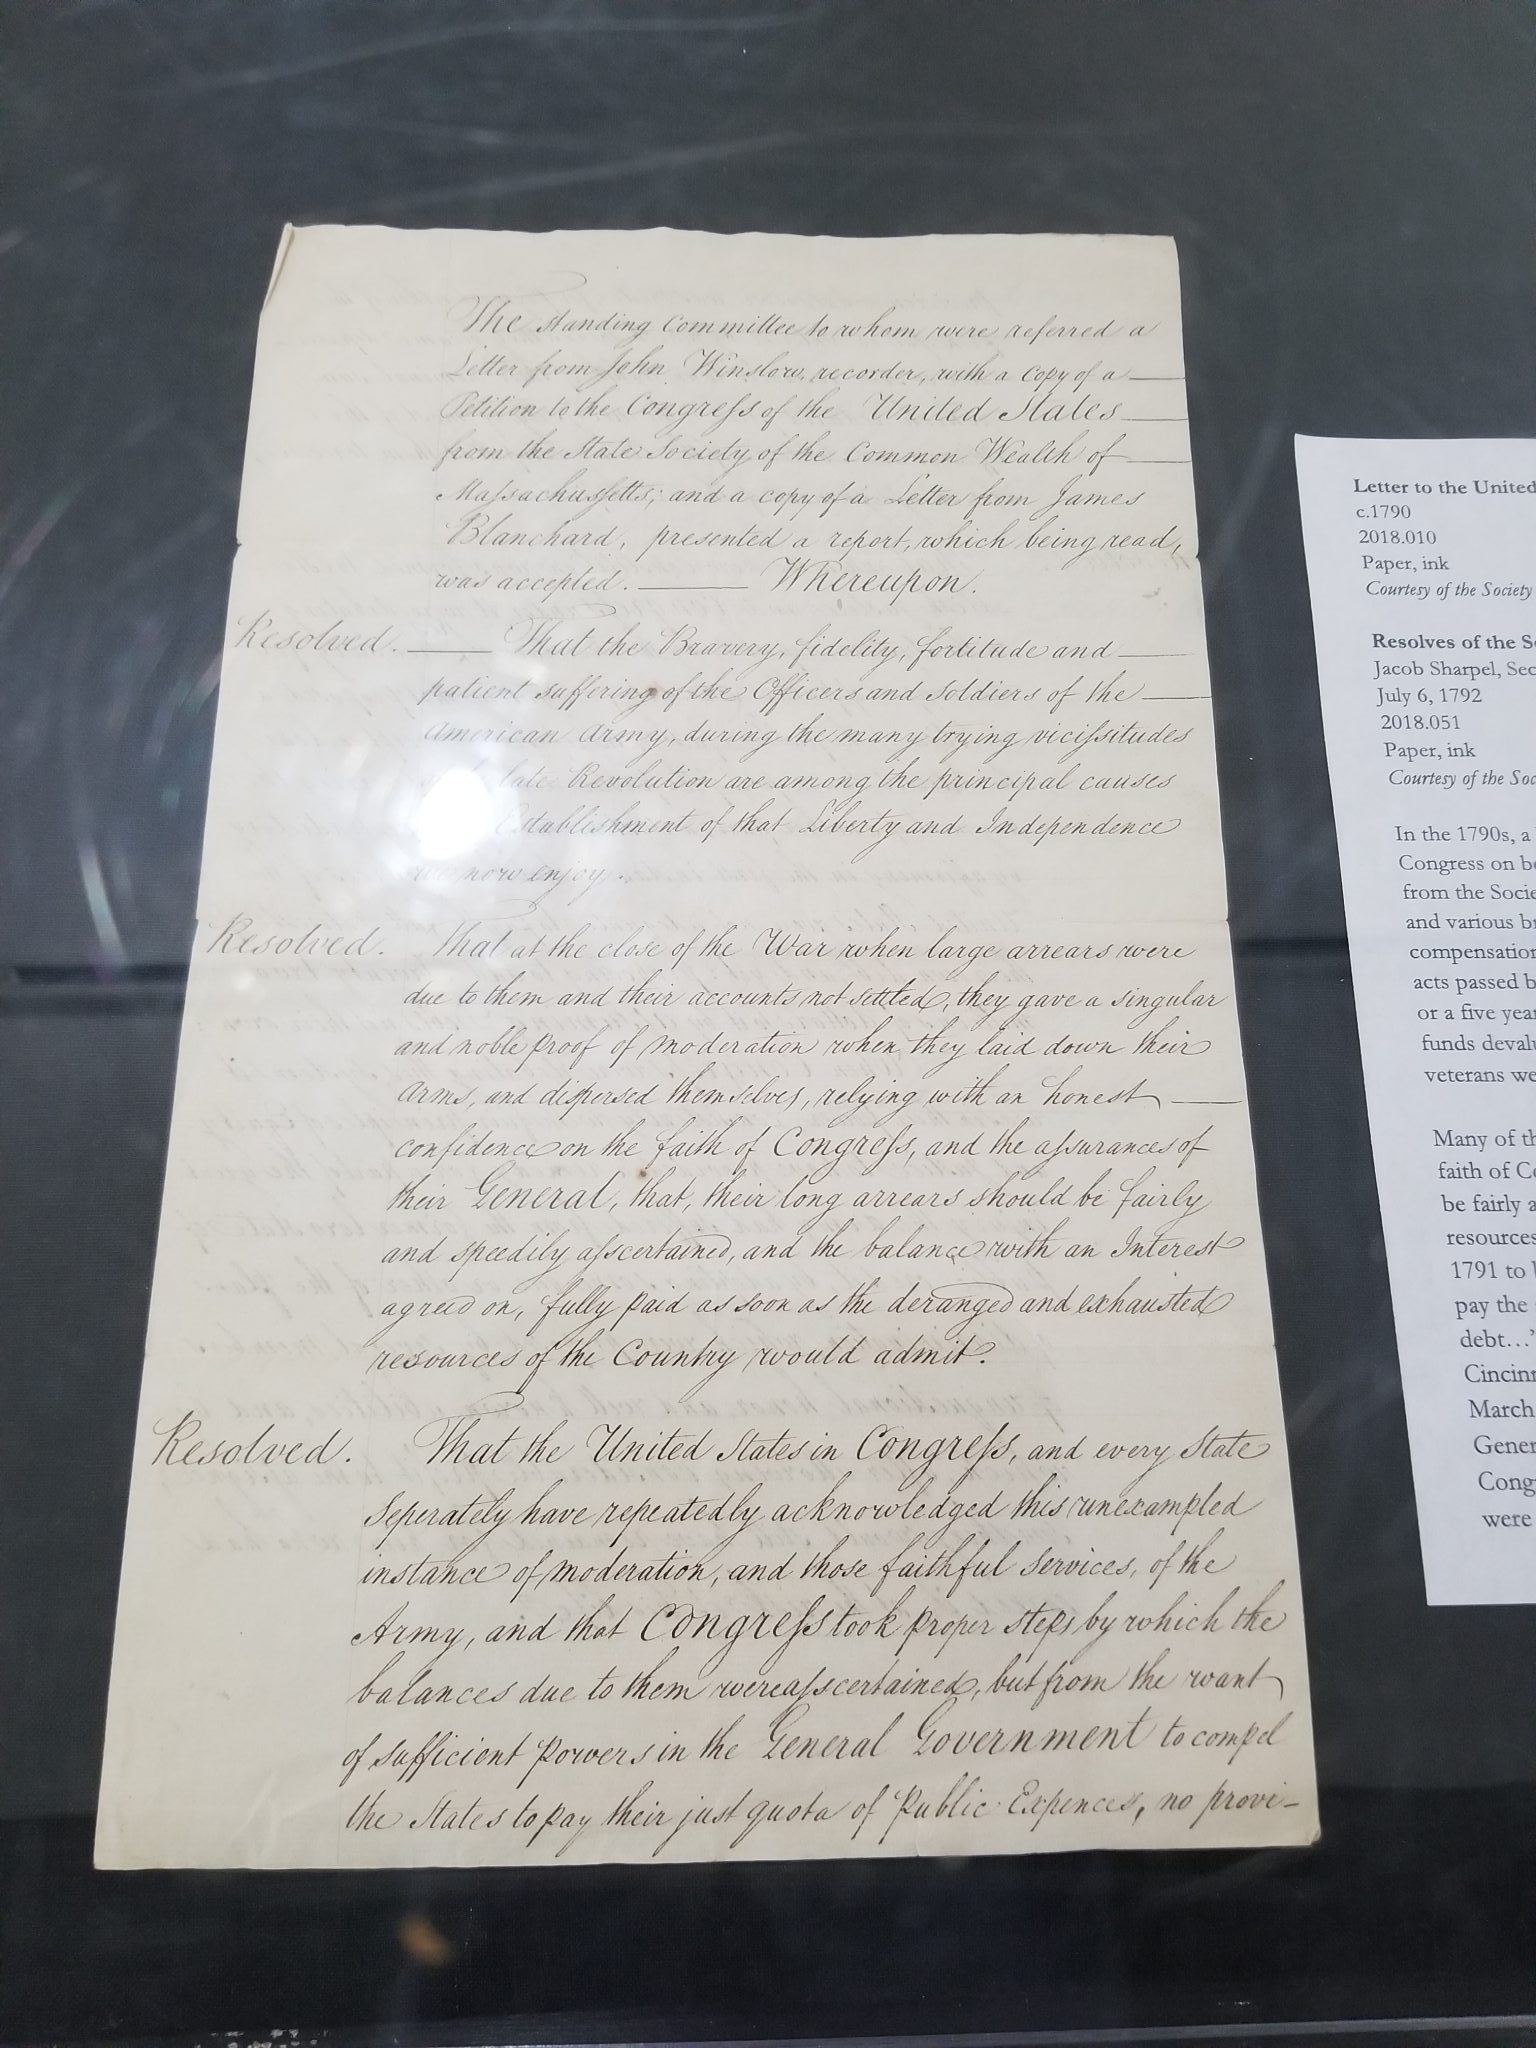 The standing Committee to whom were referred a
Letter from John Winslow, recorder, with a Copy of a
Petition to the Congreſs of the United States
from the State Society of the Common Wealth of
Maſsachuſsetts; and a copy of a Letter from James
Blanchard, presented a report, which being read,
was accepted. Whereupon.
Resolved. That the Bravery, fidelity, fortitude and
patient suffering of the Officers and Soldiers of the
American Army, during the many trying viciſsitudes
late Revolution are among the principal causes
Establishment of that Liberty and Independence
we now enjoy.
Resolved. That at the close of the War when large arrears were
due to them and their accounts not settled, they gave a singular
and noble proof of moderation when they laid down their
Arms, and dispersed themselves, relying with an honest
confidence on the faith of Congreſs, and the aſsurances of
their General, that, their long arrears should be fairly
and speedily aſscertained, and the balance with an Interest
agreed on, fully paid as soon as the deranged and exhausted
resources of the Country would admit.
Resolved. That the United States in Congreſs, and every State
Seperately have repeatedly acknowledged this unexampled
instance of moderation, and those faithful Services, of the
Army, and that Congreſs took proper steps by which the
balances due to them were aſscertained, but from the want
of sufficient Powers in the General Government to compel
the States to pay their just quota of Public Expences, no provi-
Letter to the United
c.1790
2018.010
Paper, ink
Courtesy of the Society
Resolves of the
Jacob Sharpel, Sec
July 6, 1792
2018.051
Paper, ink
Courtesy of the Soc
In the 1790s, a
Congress on be
from the Socie
and various br
compensation
acts passed b
or a five year
funds devalu
veterans we
Many of th
faith of Co
be fairly a
resources
1791 to
pay the
debt…’
Cincinn
March
Gener
Cong
were